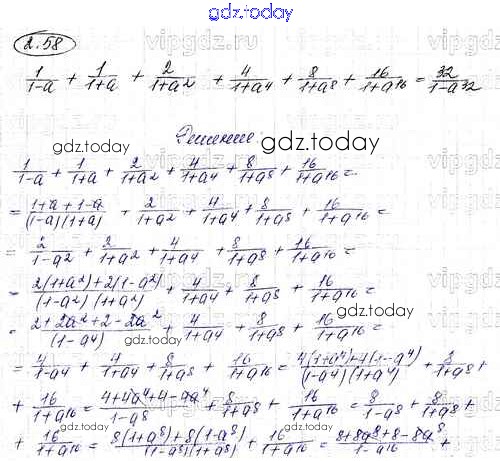 gdz.today
2.58
1/(1-a) + 1/(1+a) + 2/(1+a²) + 4/(1+a⁴) + 8/(1+a⁸) + 16/(1+a¹⁶) = 32/(1-a³²)
Решение:
gdz.today
1/(1-a) + 1/(1+a) + 2/(1+a²) + 4/(1+a⁴) + 8/(1+a⁸) + 16/(1+a¹⁶) =
= (1+a+1-a)/((1-a)(1+a)) + 2/(1+a²) + 4/(1+a⁴) + 8/(1+a⁸) + 16/(1+a¹⁶) =
= 2/(1-a²) + 2/(1+a²) + 4/(1+a⁴) + 8/(1+a⁸) + 16/(1+a¹⁶) =
= (2(1+a²)+2(1-a²))/((1-a²)(1+a²)) + 4/(1+a⁴) + 8/(1+a⁸) + 16/(1+a¹⁶) =
= (2+2a²+2-2a²)/(1-a⁴) + 4/(1+a⁴) + 8/(1+a⁸) + 16/(1+a¹⁶) =
= 4/(1-a⁴) + 4/(1+a⁴) + 8/(1+a⁸) + 16/(1+a¹⁶) = (4(1+a⁴)+4(1-a⁴))/((1-a⁴)(1+a⁴)) + 8/(1+a⁸) +
+ 16/(1+a¹⁶) = (4+4a⁴+4-4a⁴)/(1-a⁸) + 8/(1+a⁸) + 16/(1+a¹⁶) = 8/(1-a⁸) + 8/(1+a⁸) +
+ 16/(1+a¹⁶) = (8(1+a⁸)+8(1-a⁸))/((1-a⁸)(1+a⁸)) + 16/(1+a¹⁶) = (8+8a⁸+8-8a⁸)/(1-a¹⁶) +